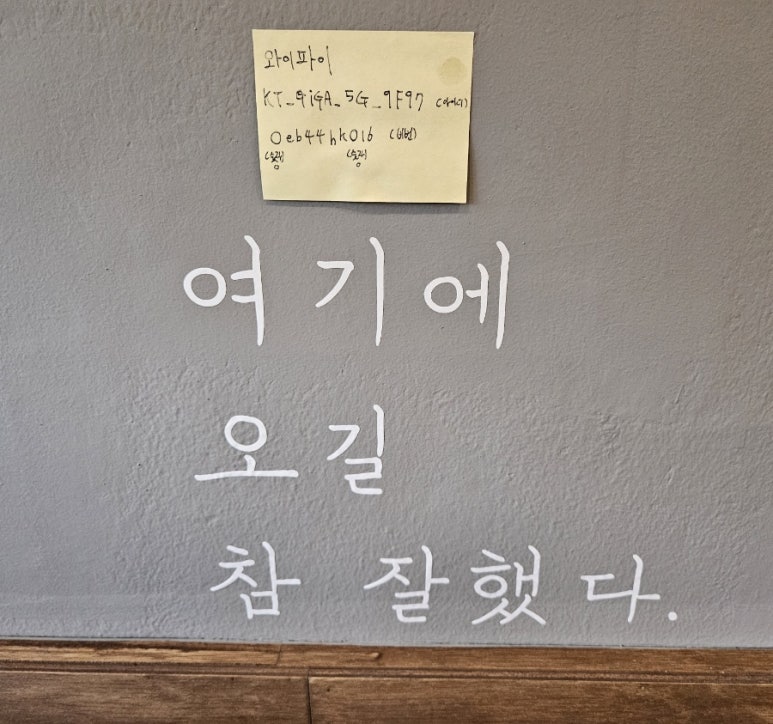 와이파이
KT_GiGA_5G_9F97 (아이디)
0eb44hk016 (비번)
(숫자) (숫자)
여기에
오길
참 잘했다.